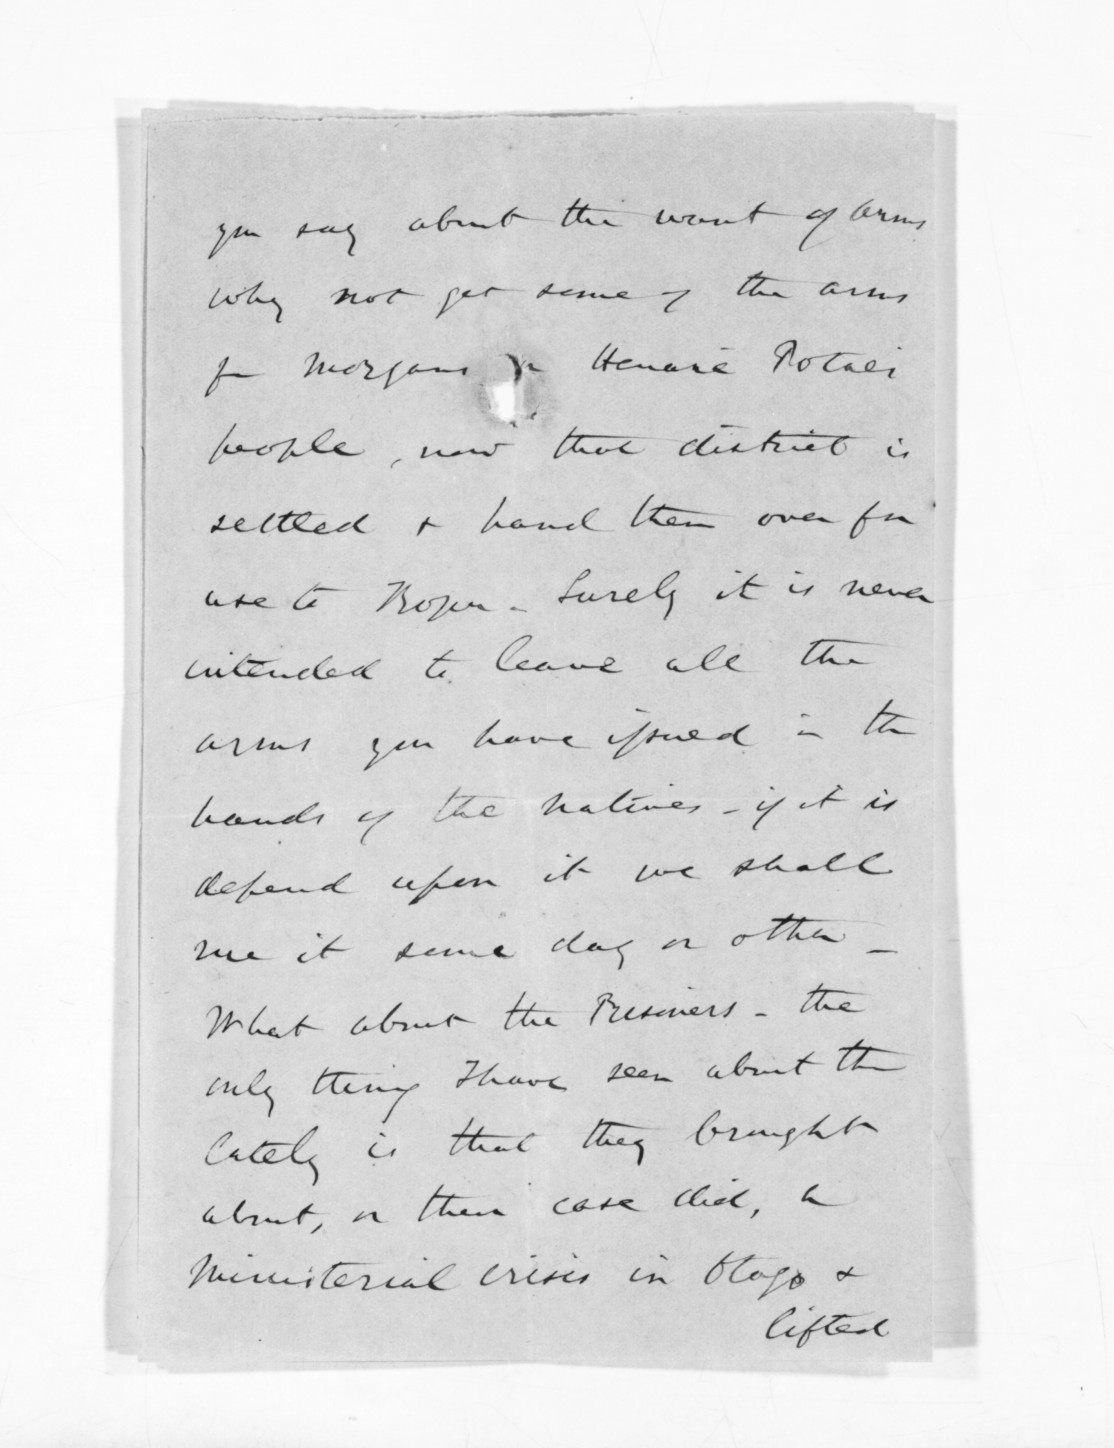 you say about the want of arms
why not get some of the arms
fm Morgans or Henare Potaes
people, now that district is
settled & hand them over for
use to Roper - Surely it is never
intended to leave all the
arms you have issued in the
hands of the Natives - if it is
depend upon it we shall
rue it some day or other -
What about the Prisoners - the
only thing I have seen about the
lately is that they brought
about, or their case did, a
Ministerial crisis in Otago &
lifted